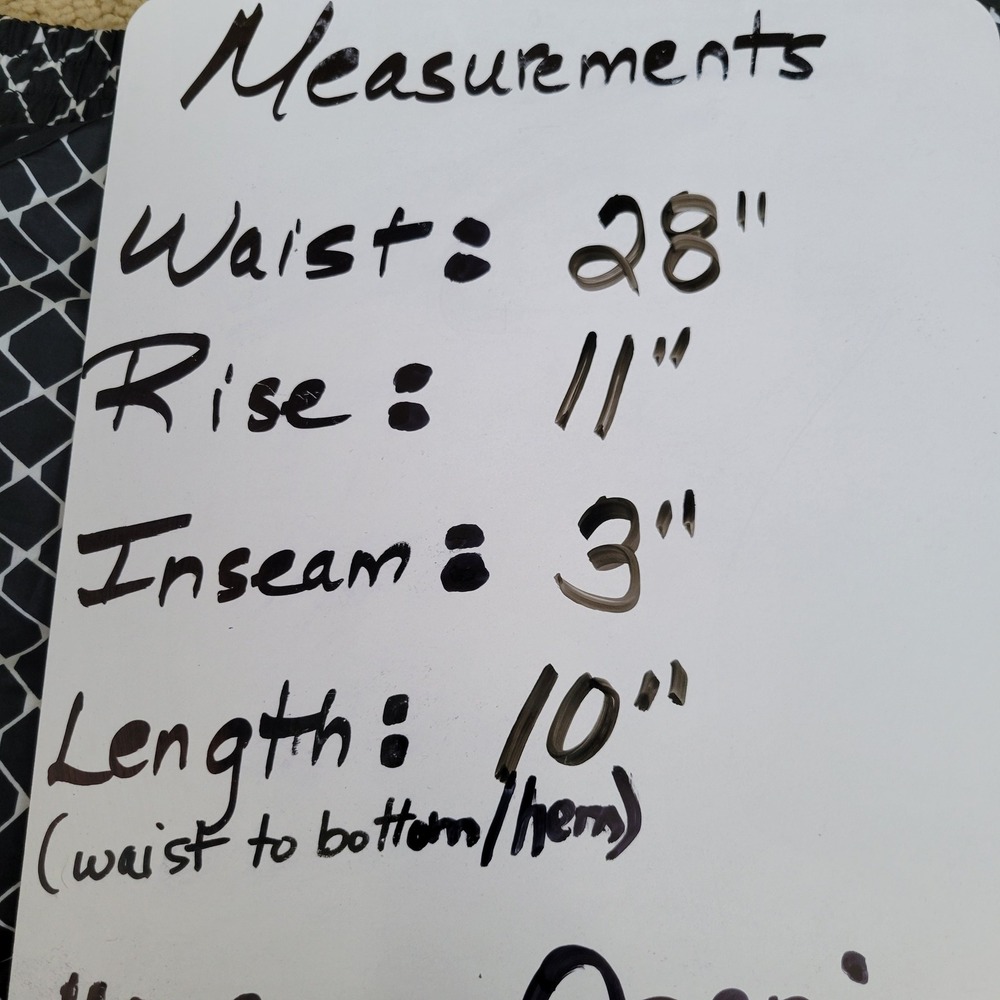 Measurements
Waist: 28"
Rise: 11"
Inseam: 3"
Length: 10"
(waist to bottom/hem)